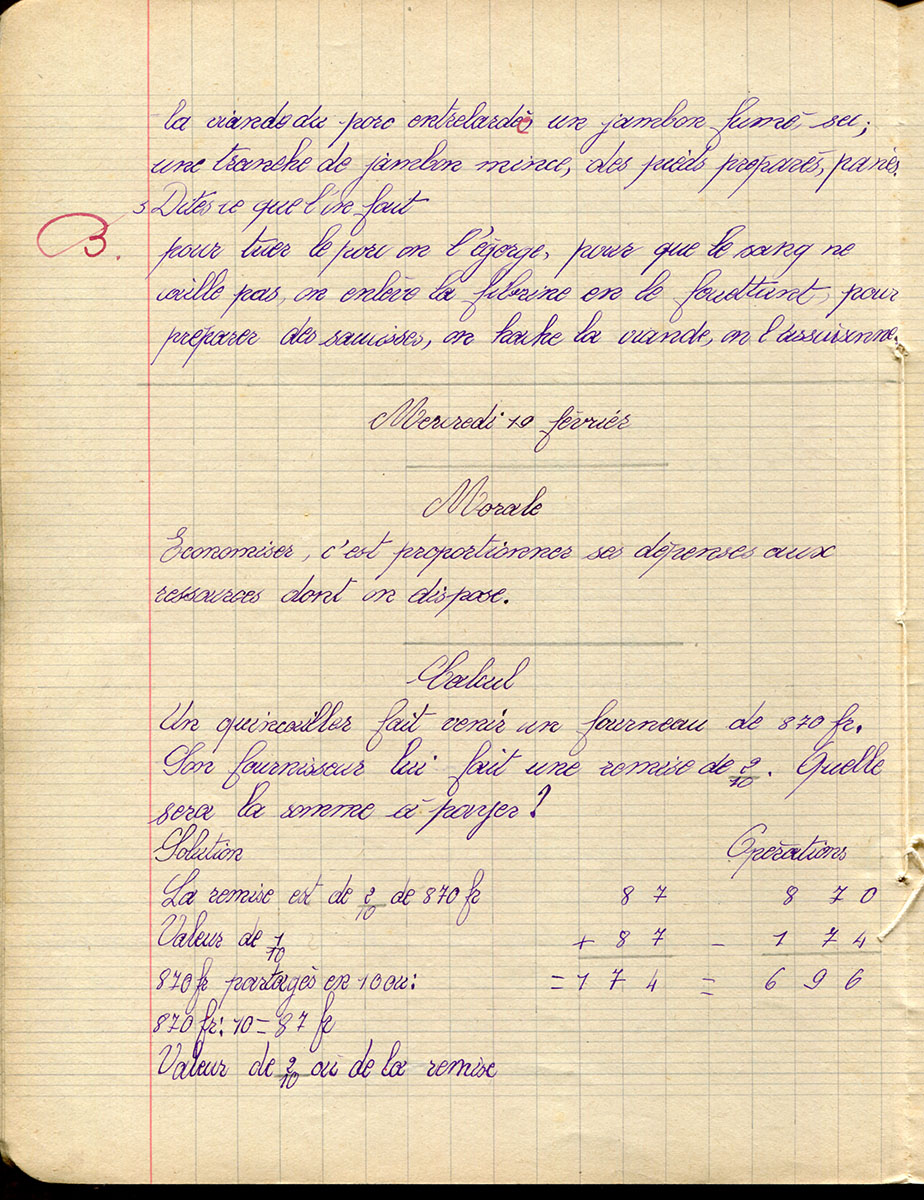 la viande du porc entrelardée un jambon fumé, sec;
une tranche de jambon mince, des pieds préparés, panés.
3 Dites ce que l'on fait
B. pour tuer le porc on l'égorge, pour que le sang ne
caille pas, on enlève la fibrine en le fouettant, pour
préparer des saucisses, on hache la viande, on l'assaisonne.
Mercredi 19 février
Morale
Economiser, c'est proportionner ses dépenses aux
ressources dont on dispose.
Calcul
Un quincailler fait venir un fourneau de 870 fr.
Son fournisseur lui fait une remise de 2/10. Quelle
sera la somme à payer?
Solution Opérations
La remise est de 2/10 de 870 fr 87 870
Valeur de 1/10 + 87 - 174
870 fr partagés en 10 ou: = 174 = 696
870 fr: 10 = 87 fr
Valeur de 2/10 ou de la remise